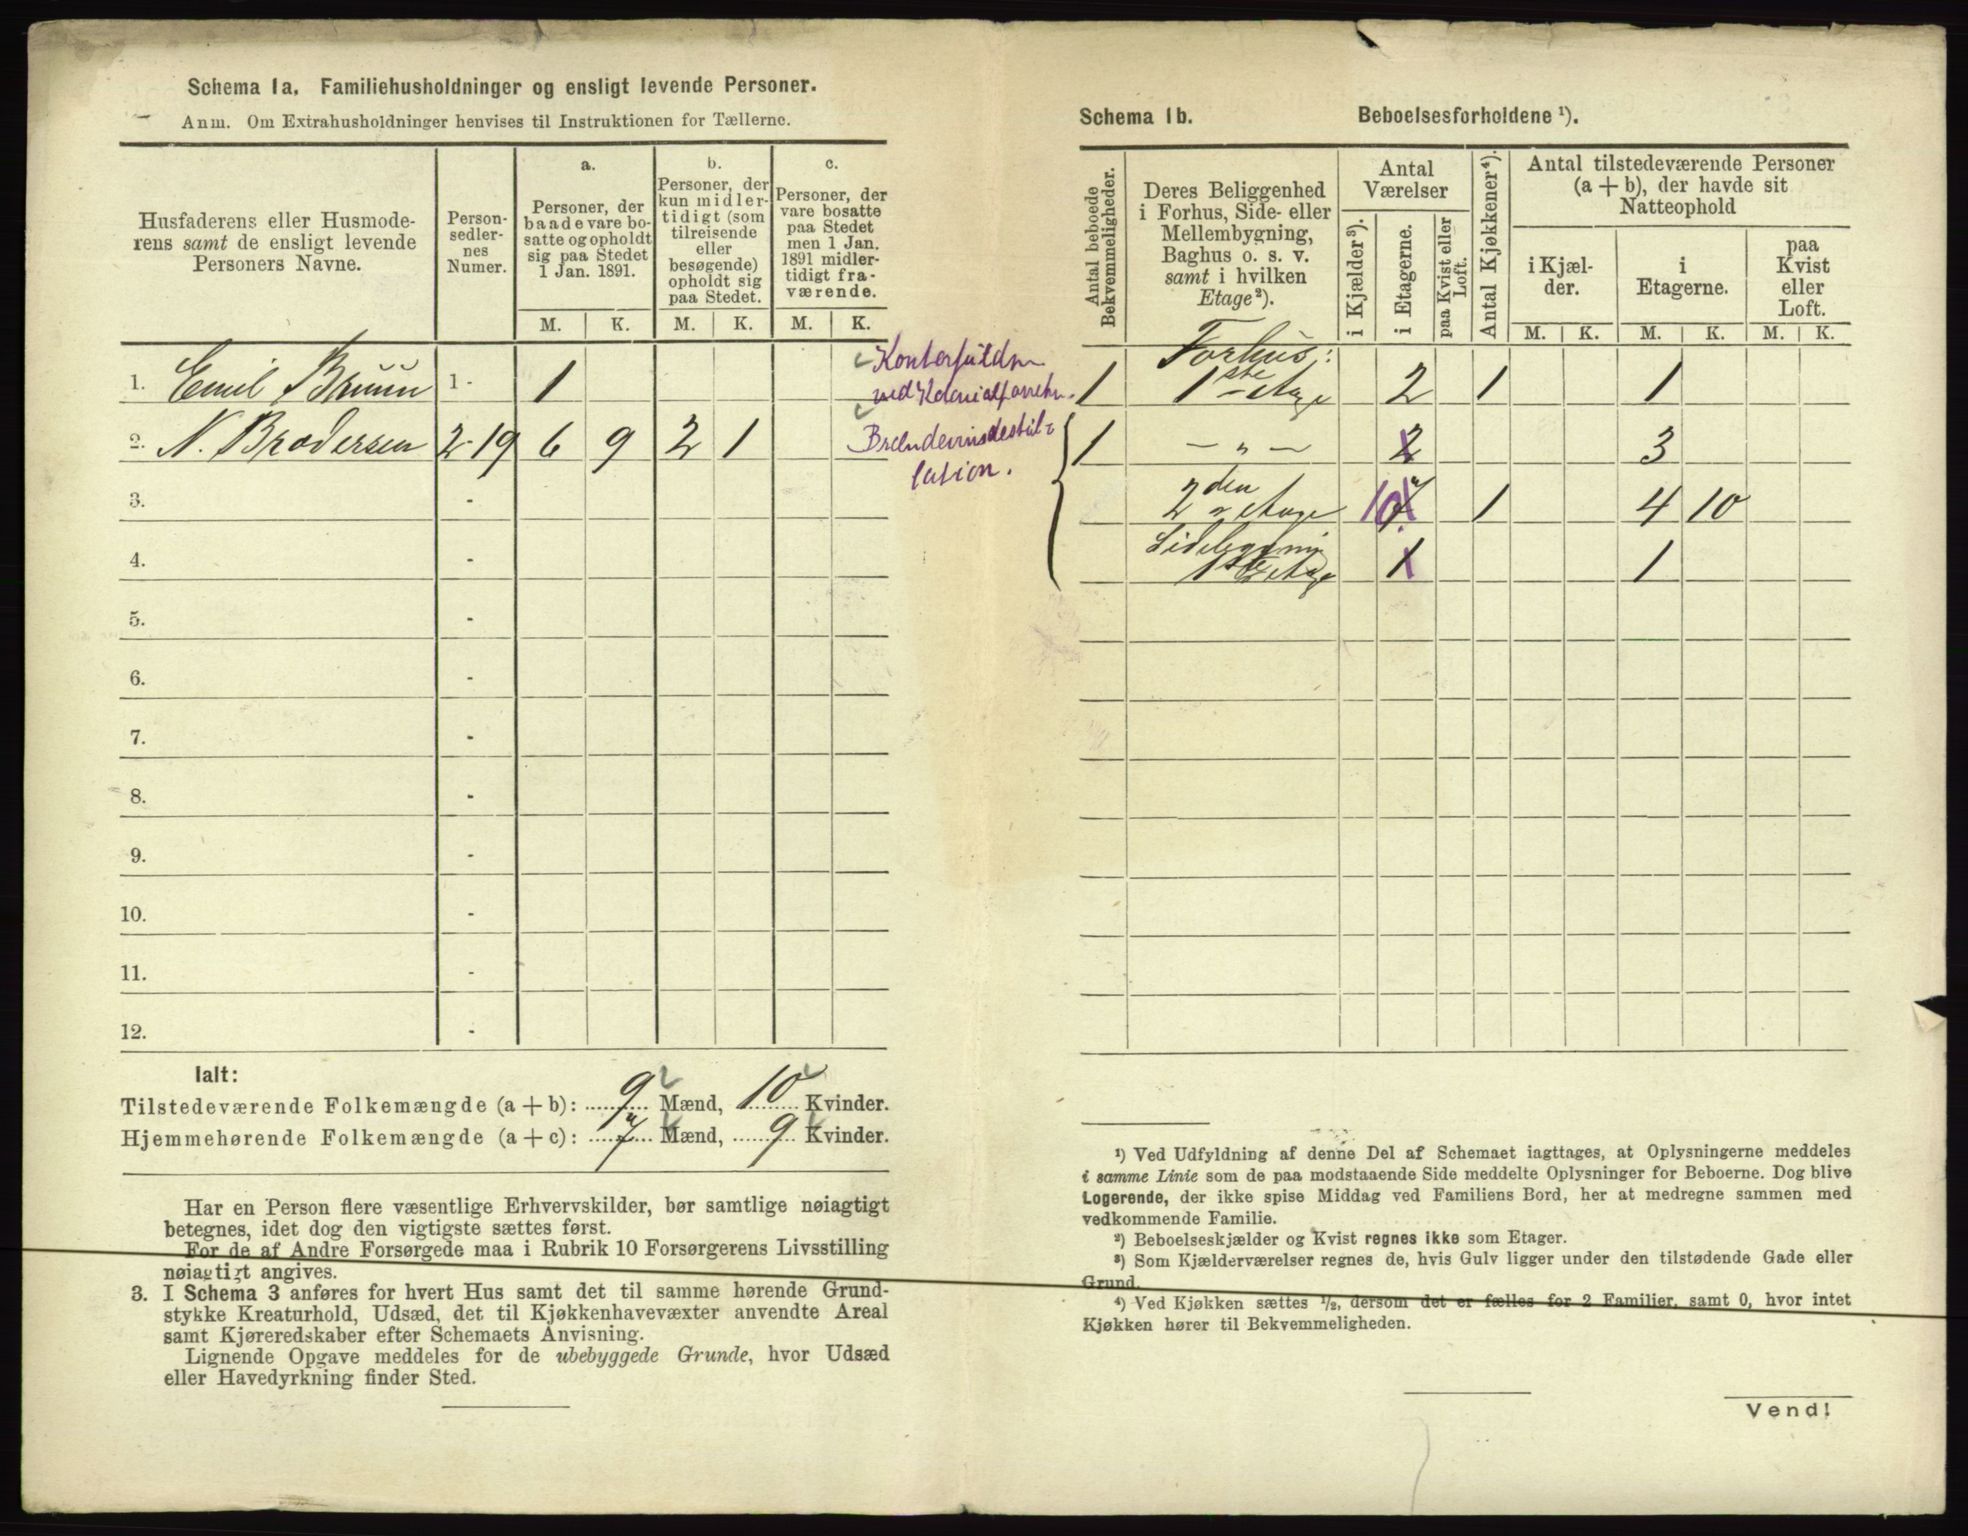 Schema 1a. Familiehusholdninger og ensligt levende Personer.
Anm. Om Extrahusholdninger henvises til Instruktionen for Tællerne.
Husfaderens eller Husmode-
rens samt de ensligt levende
Personers Navne.
Person-
sedler-
nes
Numer.
a.
Personer, der
baade vare bo-
satte og opholdt
sig paa Stedet
1 Jan. 1891.
b.
Personer, der
kun midler-
tidigt (som
tilreisende
eller
besøgende)
opholdt sig
paa Stedet.
c.
Personer, der
vare bosatte
paa Stedet
men 1 Jan.
1891 midler-
tidigt fra-
værende.
M. K. M. K. M. K.
1. Emil Bruun 1 - 1
2. N. Brodersen 2-19 6 9 2 1
3. -
4. -
5. -
6. -
7. -
8. -
9. -
10. -
11. -
12. -
ved
Brændevinsdestil-
lation.
Ialt:
Tilstedeværende Folkemængde (a + b): 9 Mænd, 10 Kvinder.
Hjemmehørende Folkemængde (a + c): 7 Mænd, 9 Kvinder.
Har en Person flere væsentlige Erhvervskilder, bør samtlige nøiagtigt
betegnes, idet dog den vigtigste sættes først.
For de af Andre Forsørgede maa i Rubrik 10 Forsørgerens Livsstilling
nøiagtigt angives.
3. I Schema 3 anføres for hvert Hus samt det til samme hørende Grund-
stykke Kreaturhold, Udsæd, det til Kjøkkenhavevæxter anvendte Areal
samt Kjøreredskaber efter Schemaets Anvisning.
Lignende Opgave meddeles for de ubebyggede Grunde, hvor Udsæd
eller Havedyrkning finder Sted.
Schema 1b. Beboelsesforholdene ¹).
Antal beboede
Bekvemmeligheder.
Deres Beliggenhed
i Forhus, Side- eller
Mellembygning,
Baghus o. s. v.
samt i hvilken
Etage²).
Antal
Værelser
i Kjælder³).
i Etagerne.
paa Kvist eller
Loft.
Antal Kjøkkener⁴).
Antal tilstedeværende Personer
(a + b), der havde sit
Natteophold
i Kjæl-
der.
i
Etagerne.
paa
Kvist
eller
Loft.
M. K. M. K. M. K.
Forhus:
1 1ste Etage 2 1 1
1 — „ — 2 3
2den Etage 10 7 1 4 10
1ste Etage 1 1
¹) Ved Udfyldning af denne Del af Schemaet iagttages, at Oplysningerne meddeles
i samme Linie som de paa modstaaende Side meddelte Oplysninger for Beboerne. Dog blive
Logerende, der ikke spise Middag ved Familiens Bord, her at medregne sammen med
vedkommende Familie.
²) Beboelseskjælder og Kvist regnes ikke som Etager.
³) Som Kjælderværelser regnes de, hvis Gulv ligger under den tilstødende Gade eller
Grund.
⁴) Ved Kjøkken sættes ½, dersom det er fælles for 2 Familier, samt 0, hvor intet
Kjøkken hører til Bekvemmeligheden.
Vend!